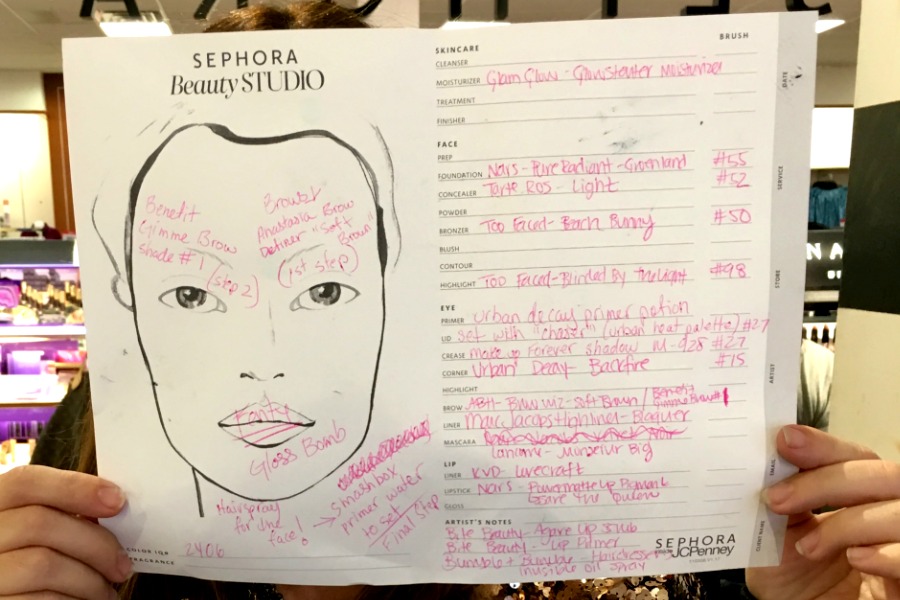 SEPHORA
Beauty STUDIO
Benefit
Gimme Brow
shade #1
(step 2)
Brows!
Anastasia Brow
Definer "Soft
Brown"
(1st step)
Fenty
Gloss Bomb
Hairspray
for the
face!
smashbox
primer water
to set
Final Step
COLOR IQ®
2Y06
FRAGRANCE
BRUSH
SKINCARE
CLEANSER
MOISTURIZER Glam Glow - Glowstarter Moisturizer
TREATMENT
FINISHER
FACE
PREP
FOUNDATION Nars - Pure Radiant - Groenland #55
CONCEALER Tarte - Light #52
POWDER
BRONZER Too Faced - Beach Bunny #50
BLUSH
CONTOUR
HIGHLIGHT Too Faced - Blinded By the light #98
EYE
PRIMER urban decay primer potion
LID set with "chaser" (urban heat palette) #27
CREASE make up Forever shadow M-928 #27
CORNER Urban Decay - Backfire #15
HIGHLIGHT
BROW ABH - Brow Wiz - Soft Brown / Benefit Gimme Brow #1
LINER Marc Jacobs Highliner - Blaquer
MASCARA
Lancome - Monsieur Big
LIP
LINER KVD - Lovecraft
LIPSTICK Nars - Powermatte Lip Pigment
Save the Queen
GLOSS
ARTIST'S NOTES
Bite Beauty - Agave Lip Scrub
Bite Beauty - Lip Primer
Bumble + Bumble - Hairdresser's
Invisible oil spray
SEPHORA
INSIDE JCPenney
DATE
SERVICE
STORE
ARTIST
EMAIL
CLIENT NAME